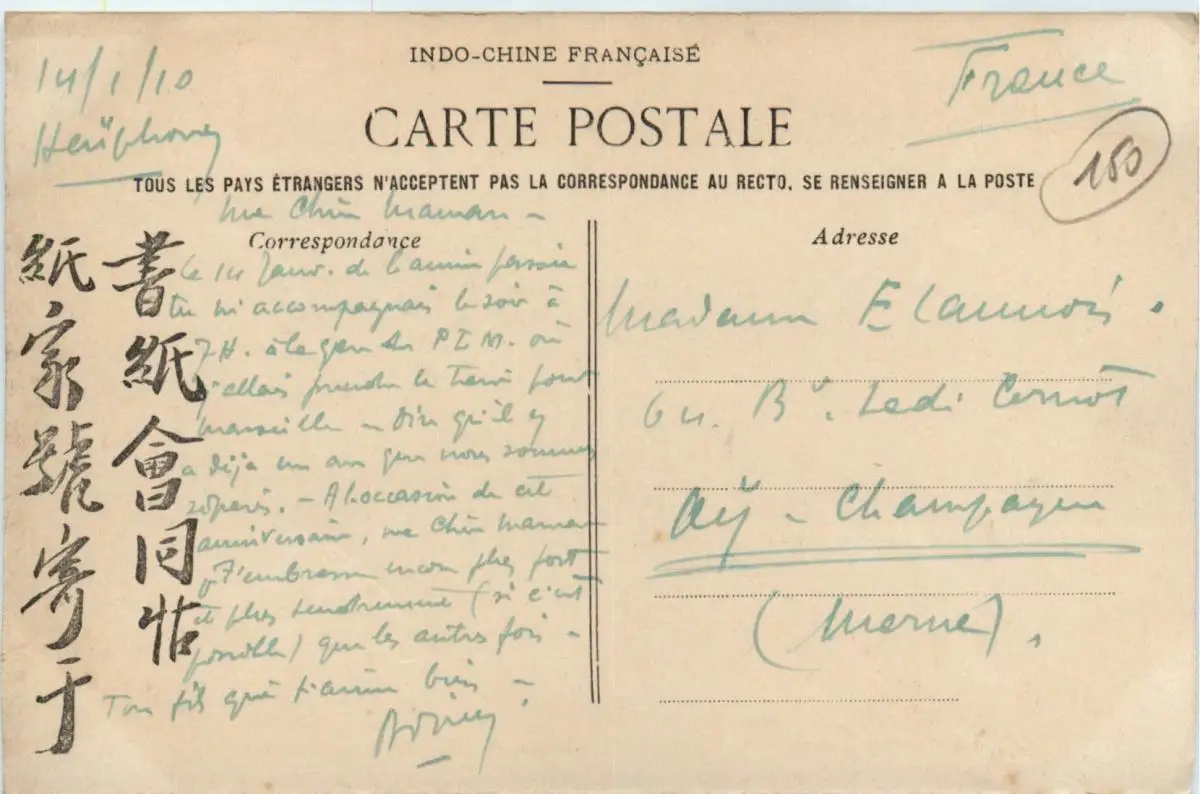 14/1/10
INDO-CHINE FRANÇAISE
France
CARTE POSTALE
150
TOUS LES PAYS ÉTRANGERS N'ACCEPTENT PAS LA CORRESPONDANCE AU RECTO, SE RENSEIGNER A LA POSTE
Ma Chère Maman –
Correspondance
Le 14 Janv. de l'année passée
tu m'accompagnais le soir à
7H. à la gare du P.L.M. où
j'allais prendre le train pour
Marseille – Dire qu'il y
a déjà un an que nous sommes
séparés. – A l'occasion de cet
anniversaire, ma Chère Maman
je t'embrasse encore plus fort
et plus tendrement (si c'est
possible) que les autres fois –
Ton fils qui t'aime bien –
書紙會同帖
紙家號寄于
Adresse
Madame E Launois.
Bd.
Aÿ – Champagne
(Marne).